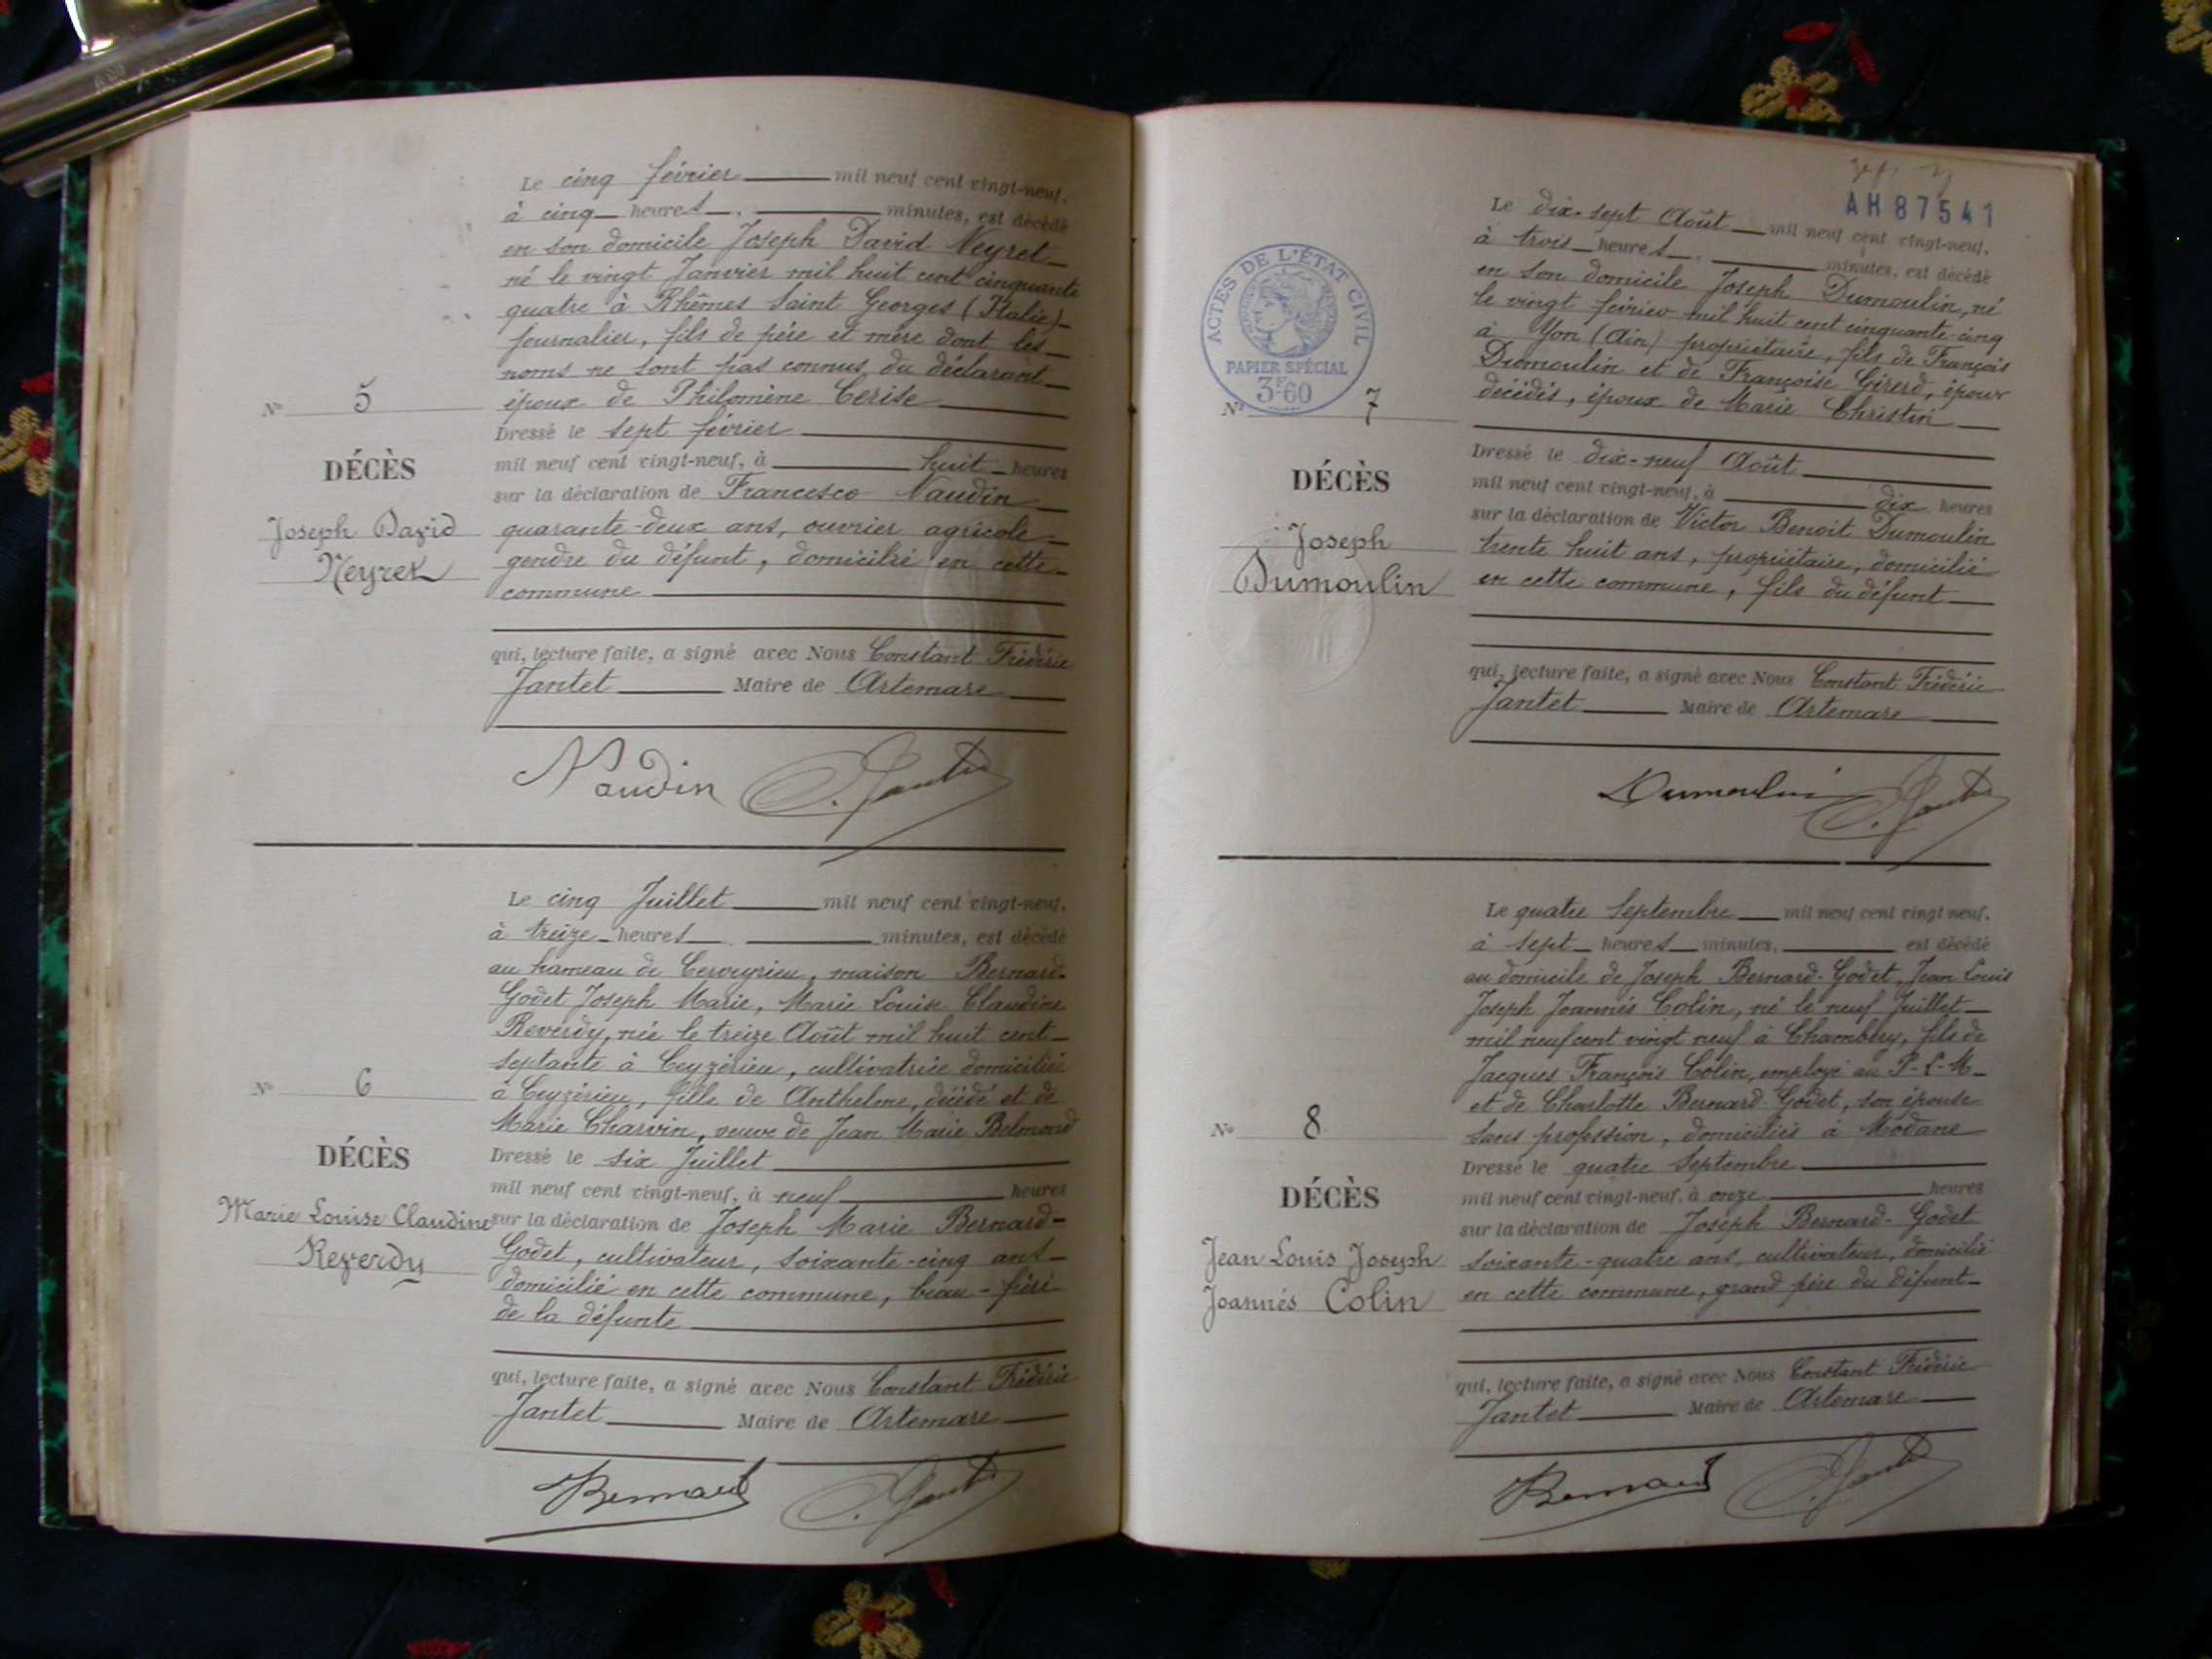 Le cinq février mil neuf cent vingt-neuf,
à cinq heures minutes, est décédé
en son domicile Joseph David Neyret
né le vingt Janvier mil huit cent cinquante
quatre à Rhêmes Saint Georges (Italie)
journalier, fils de père et mère dont les
noms ne sont pas connus du déclarant
époux de Philomène Cerise
Nº 5
Dressé le sept février
mil neuf cent vingt-neuf, à huit heures
DÉCÈS
sur la déclaration de Francesco Naudin
Joseph David
quarante-deux ans, ouvrier agricole
Neyret
gendre du défunt, domicilié en cette
commune
qui, lecture faite, a signé avec Nous Constant Frédéric
Jantet Maire de Artemare
Naudin C. Jantet
Le cinq Juillet mil neuf cent vingt-neuf,
à treize heures minutes, est décédé
au hameau de Cerveyrieu, maison Bernard-
Godet Joseph Marie, Marie Louise Claudine
Reverdy, née le treize Août mil huit cent
septante à Ceyzérieu, cultivatrice domiciliée
Nº 6
à Ceyzérieu, fille de Anthelme, décédé et de
Marie Charvin, veuve de Jean Marie Belmond
DÉCÈS
Dressé le six Juillet
mil neuf cent vingt-neuf, à neuf heures
Marie Louise Claudine
sur la déclaration de Joseph Marie Bernard-
Reverdy
Godet, cultivateur, soixante-cinq ans
domicilié en cette commune, beau-frère
de la défunte
qui, lecture faite, a signé avec Nous Constant Frédéric
Jantet Maire de Artemare
Bernard C. Jantet
AH 87541
Le dix-sept Août mil neuf cent vingt-neuf,
à trois heures minutes, est décédé
en son domicile Joseph Dumoulin, né
le vingt février mil huit cent cinquante-cinq
à Yon (Ain) propriétaire, fils de François
Dumoulin et de Françoise Girerd, époux
décédés, époux de Marie Christin
ACTES DE L'ÉTAT CIVIL
PAPIER SPÉCIAL
3F60
Nº 7
Dressé le dix-neuf Août
DÉCÈS
mil neuf cent vingt-neuf, à dix heures
sur la déclaration de Victor Benoit Dumoulin
Joseph
trente huit ans, propriétaire, domicilié
Dumoulin
en cette commune, fils du défunt
qui, lecture faite, a signé avec Nous Constant Frédéric
Jantet Maire de Artemare
Dumoulin C. Jantet
Le quatre Septembre mil neuf cent vingt neuf,
à sept heures minutes, est décédé
au domicile de Joseph Bernard-Godet, Jean Louis
Joseph Joannès Colin, né le neuf Juillet
mil neuf cent vingt neuf à Chambéry, fils de
Jacques François Colin, employé au P-L-M
et de Charlotte Bernard-Godet, son épouse
Nº 8
sans profession, domiciliés à Modane
Dressé le quatre Septembre
DÉCÈS
mil neuf cent vingt-neuf, à onze heures
sur la déclaration de Joseph Bernard-Godet
Jean Louis Joseph
soixante-quatre ans, cultivateur, domicilié
Joannès Colin
en cette commune, grand père du défunt
qui, lecture faite, a signé avec Nous Constant Frédéric
Jantet Maire de Artemare
Bernard C. Jantet